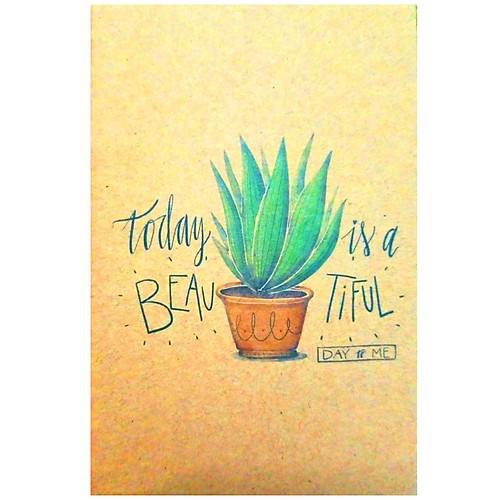 Today is a
BEAUTIFUL
DAY to ME